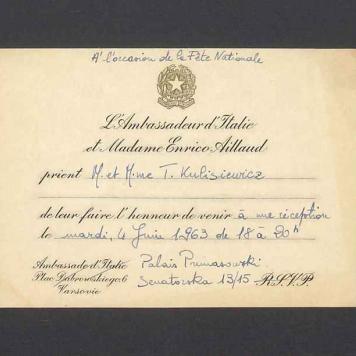 A l'occasion de la Fête Nationale
L'Ambassadeur d'Italie
et Madame Enrico Aillaud
prient M. et Mme T. Kulisiewicz
de leur faire l'honneur de venir à une réception
le mardi, 4 Juin 1963 de 18 à 20h
Ambassade d'Italie
Plac Dąbrowskiego, 6
Varsovie
Palais Prymasowski
Senatorska 13/15
R.S.V.P.